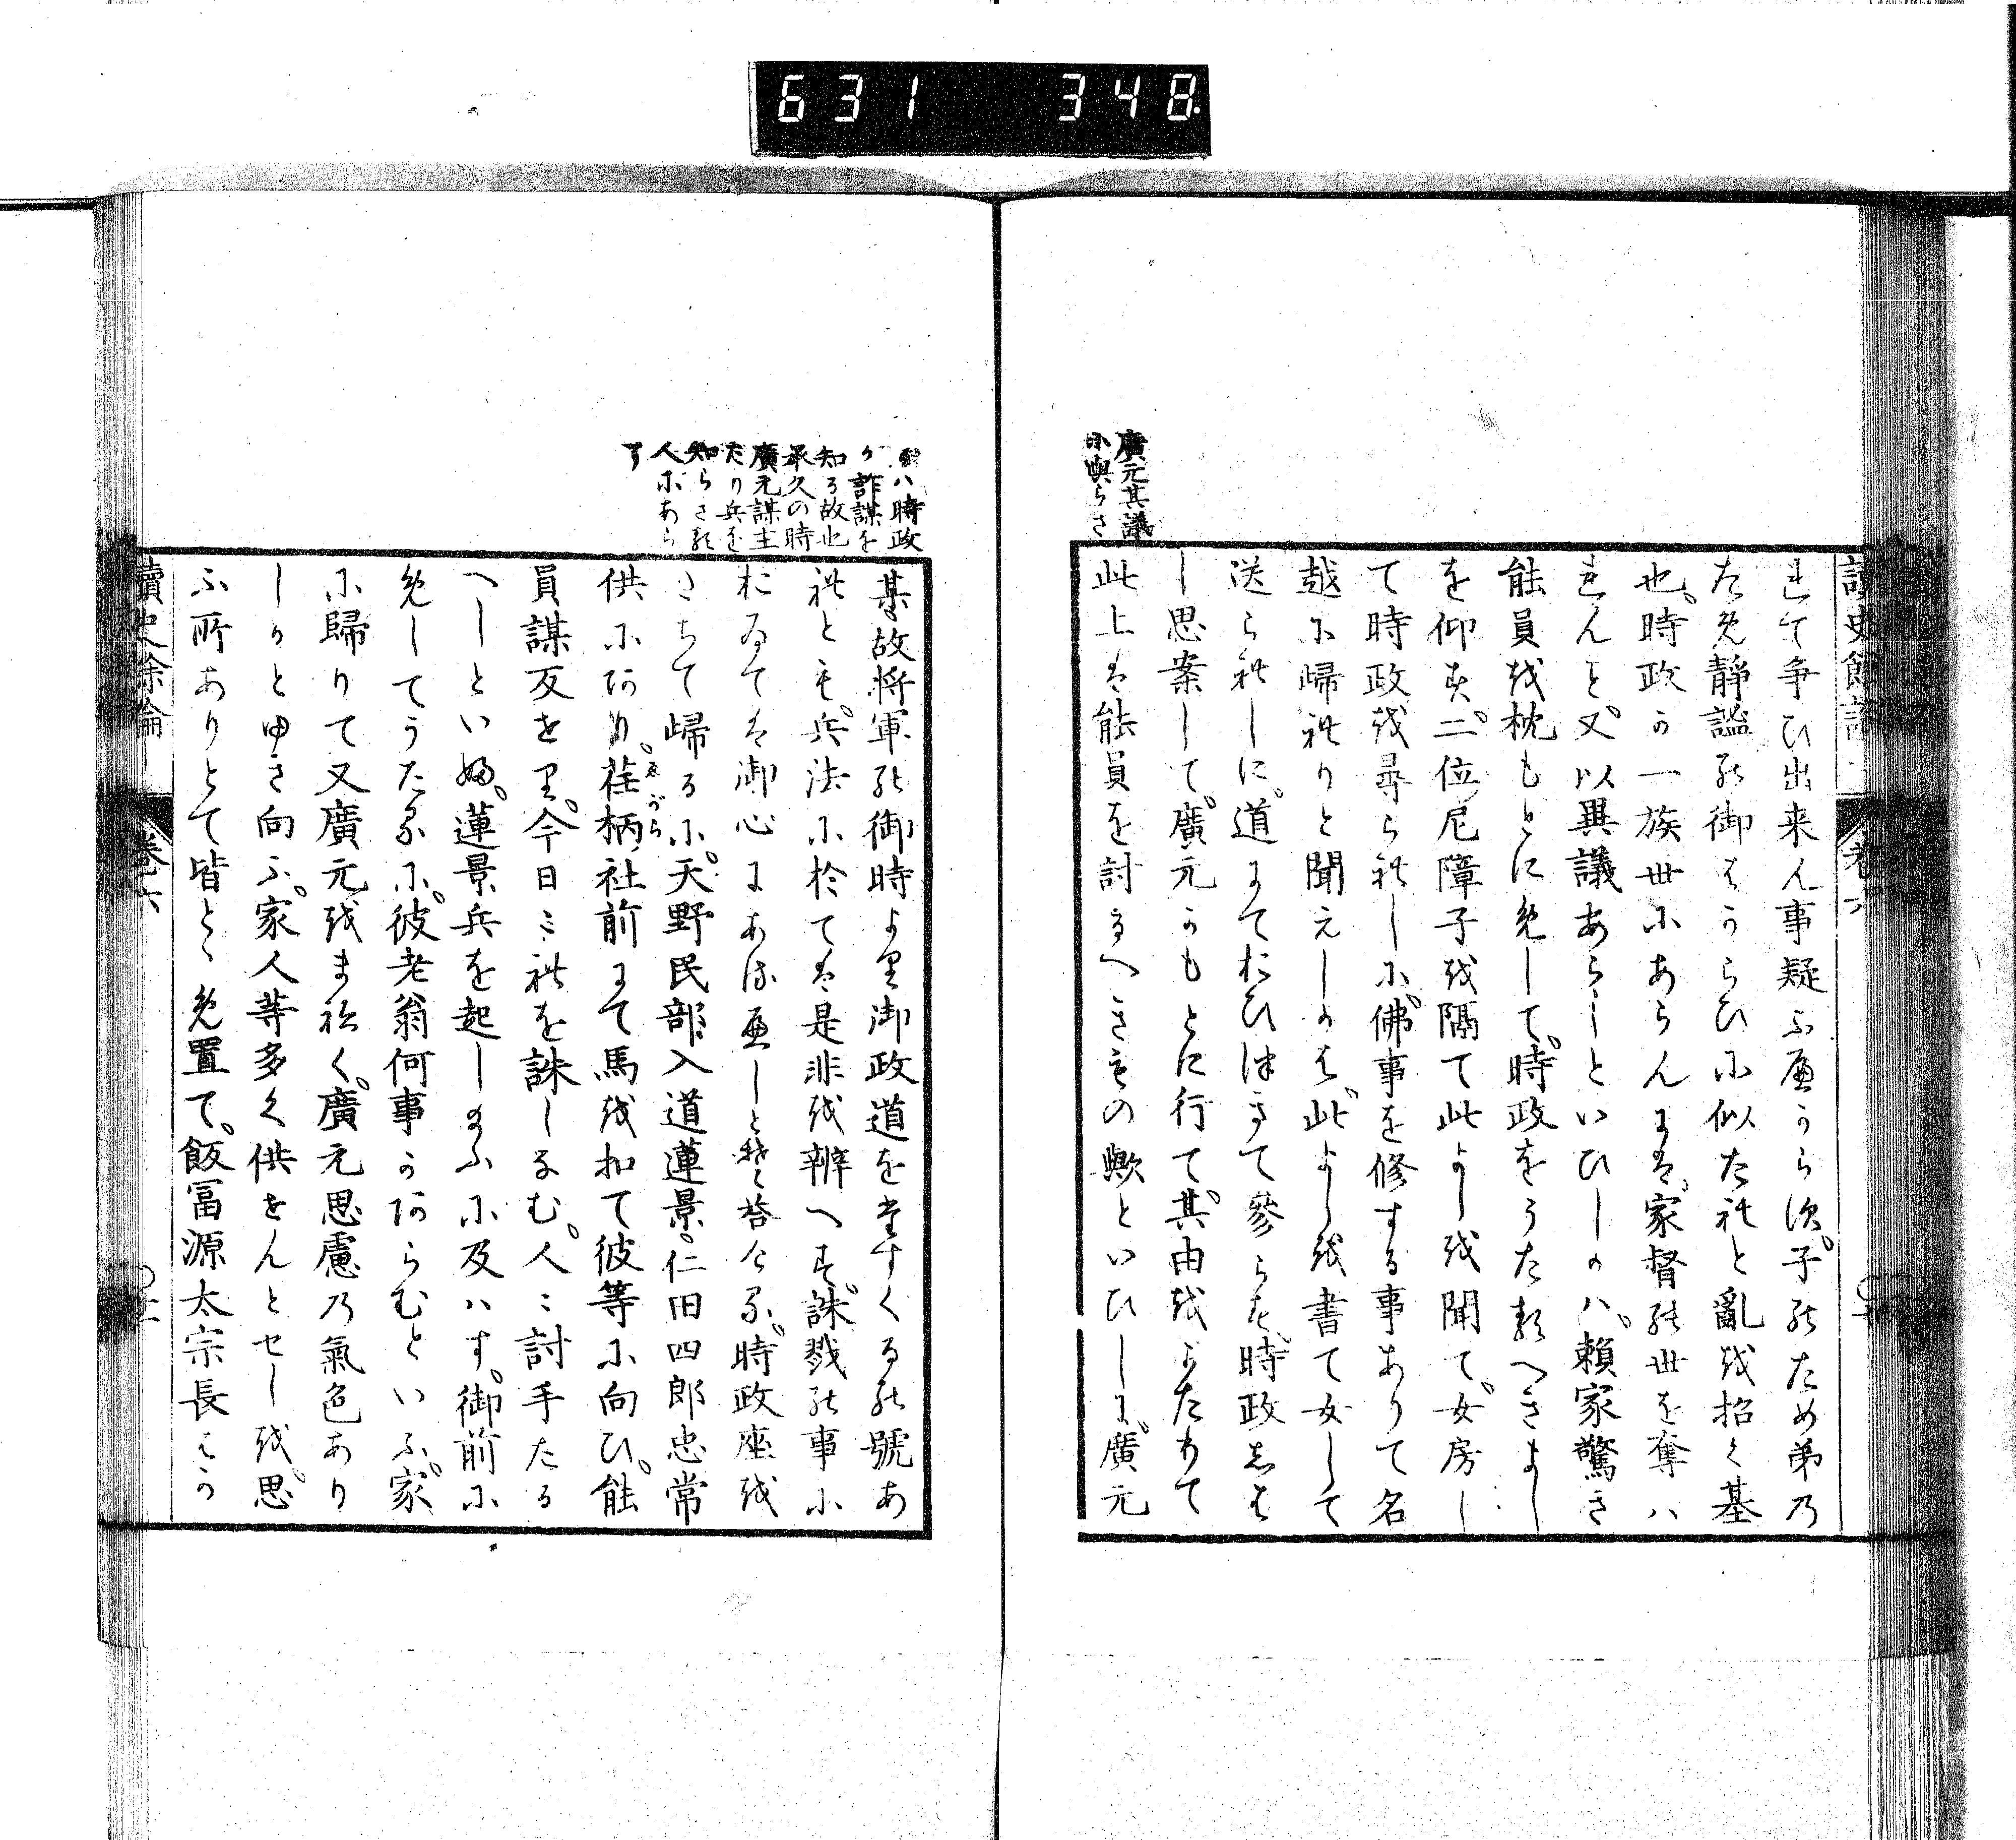 631 348
讀史餘論 卷六
廣元其議
に與らさ
れて争ひ出来ん事疑ふへからす。子のため弟の
ため靜謐の御はからひに似たれと亂を招く基
也。時政か一族世にあらんには。家督の世を奪ハ
れんと。又以異議あらしといひしかハ。頼家驚き
能員を枕もとにめして。時政をうたるへきよし
を仰す。二位尼障子を隔て此よしを聞て。女房し
て時政を尋られしに。佛事を修する事ありて名
越に歸れりと聞えしかは。此よしを書て女して
送られしに。道にておひつきて參らす。時政しは
し思案して。廣元かもとに行て。其由をかたりて
此上は能員を討るへきもの歟といひしに。廣元
八時政
か詐謀を
知る故也
承久の時
廣元謀主
たり兵を
知らさる
人にあら
す
某故将軍の御時より御政道をたすくるの號あ
れとも。兵法に於ては是非を辨へす。誅戮の事に
おゐては御心にあるへしと答ける。時政座を
たちて歸るに。天野民部入道蓮景。仁田四郎忠常
供にあり。荏柄社前にて馬を扣て彼等に向ひ。能
ゑがら
員謀反せり。今日これを誅しなむ。人々討手たる
へしといふ。蓮景兵を起し給ふに及ハす。御前に
めしてうたるに。彼老翁何事かあらむといふ。家
に歸りて又廣元をまねく。廣元思慮の氣色あり
しかとゆき向ふ。家人等多く供せんとせしを。思
ふ所ありとて皆とゝめ置て。飯冨源太宗長はか
讀史餘論 卷六